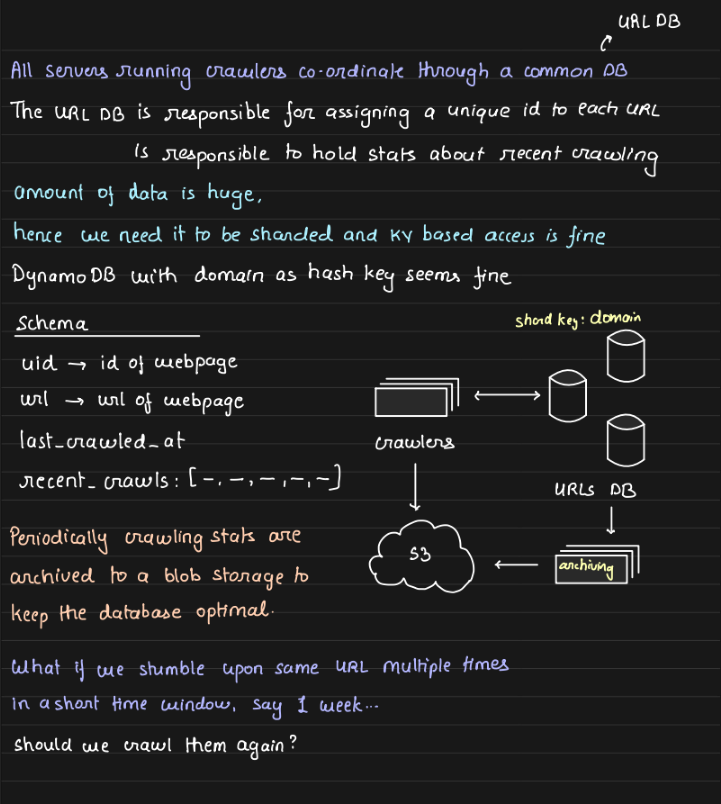 URL DB
All servers running crawlers co-ordinate through a common DB
The URL DB is responsible for assigning a unique id to each URL
is responsible to hold stats about recent crawling
amount of data is huge,
hence we need it to be sharded and KV based access is fine
DynamoDB with domain as hash key seems fine
Schema
uid → id of webpage
url → url of webpage
last_crawled_at
recent_crawls: [-,-,-,-,-]
shard key: domain
crawlers
URLs DB
S3
archiving
Periodically crawling stats are
archived to a blob storage to
keep the database optimal.
What if we stumble upon same URL multiple times
in a short time window, say 1 week...
should we crawl them again?